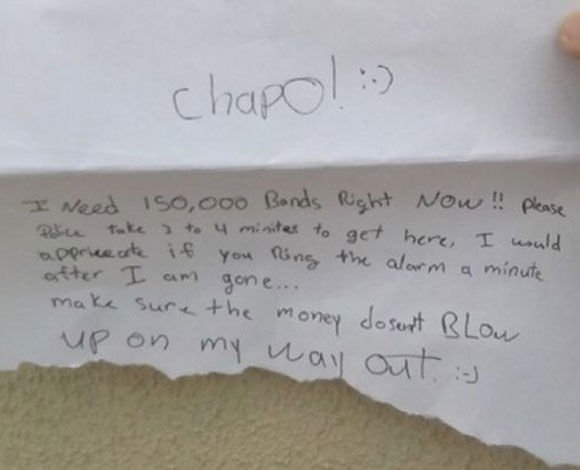 chapo! :-)
I Need 150,000 Bands Right NOW!! Please
Police take 3 to 4 minites to get here, I would
appriceate if you Ring the alarm a minute
after I am gone...
make sure the money dosen't BLOW
UP on my way OUT. :-)